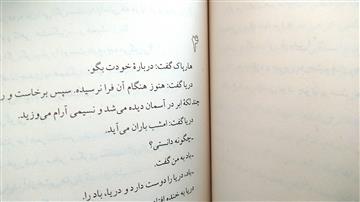 ۳
هارپاک گفت: دربارهٔ خودت بگو.
دریا گفت: هنوز هنگام آن فرا نرسیده. سپس برخاست و ر
چند لکهٔ ابر در آسمان دیده می‌شد و نسیمی آرام می‌وزید.
دریا گفت: امشب باران می‌آید.
ـ چگونه دانستی؟
ـ باد به من گفت.
ـ باد، دریا را دوست دارد و دریا، باد را.
دریا به خنده افتاد